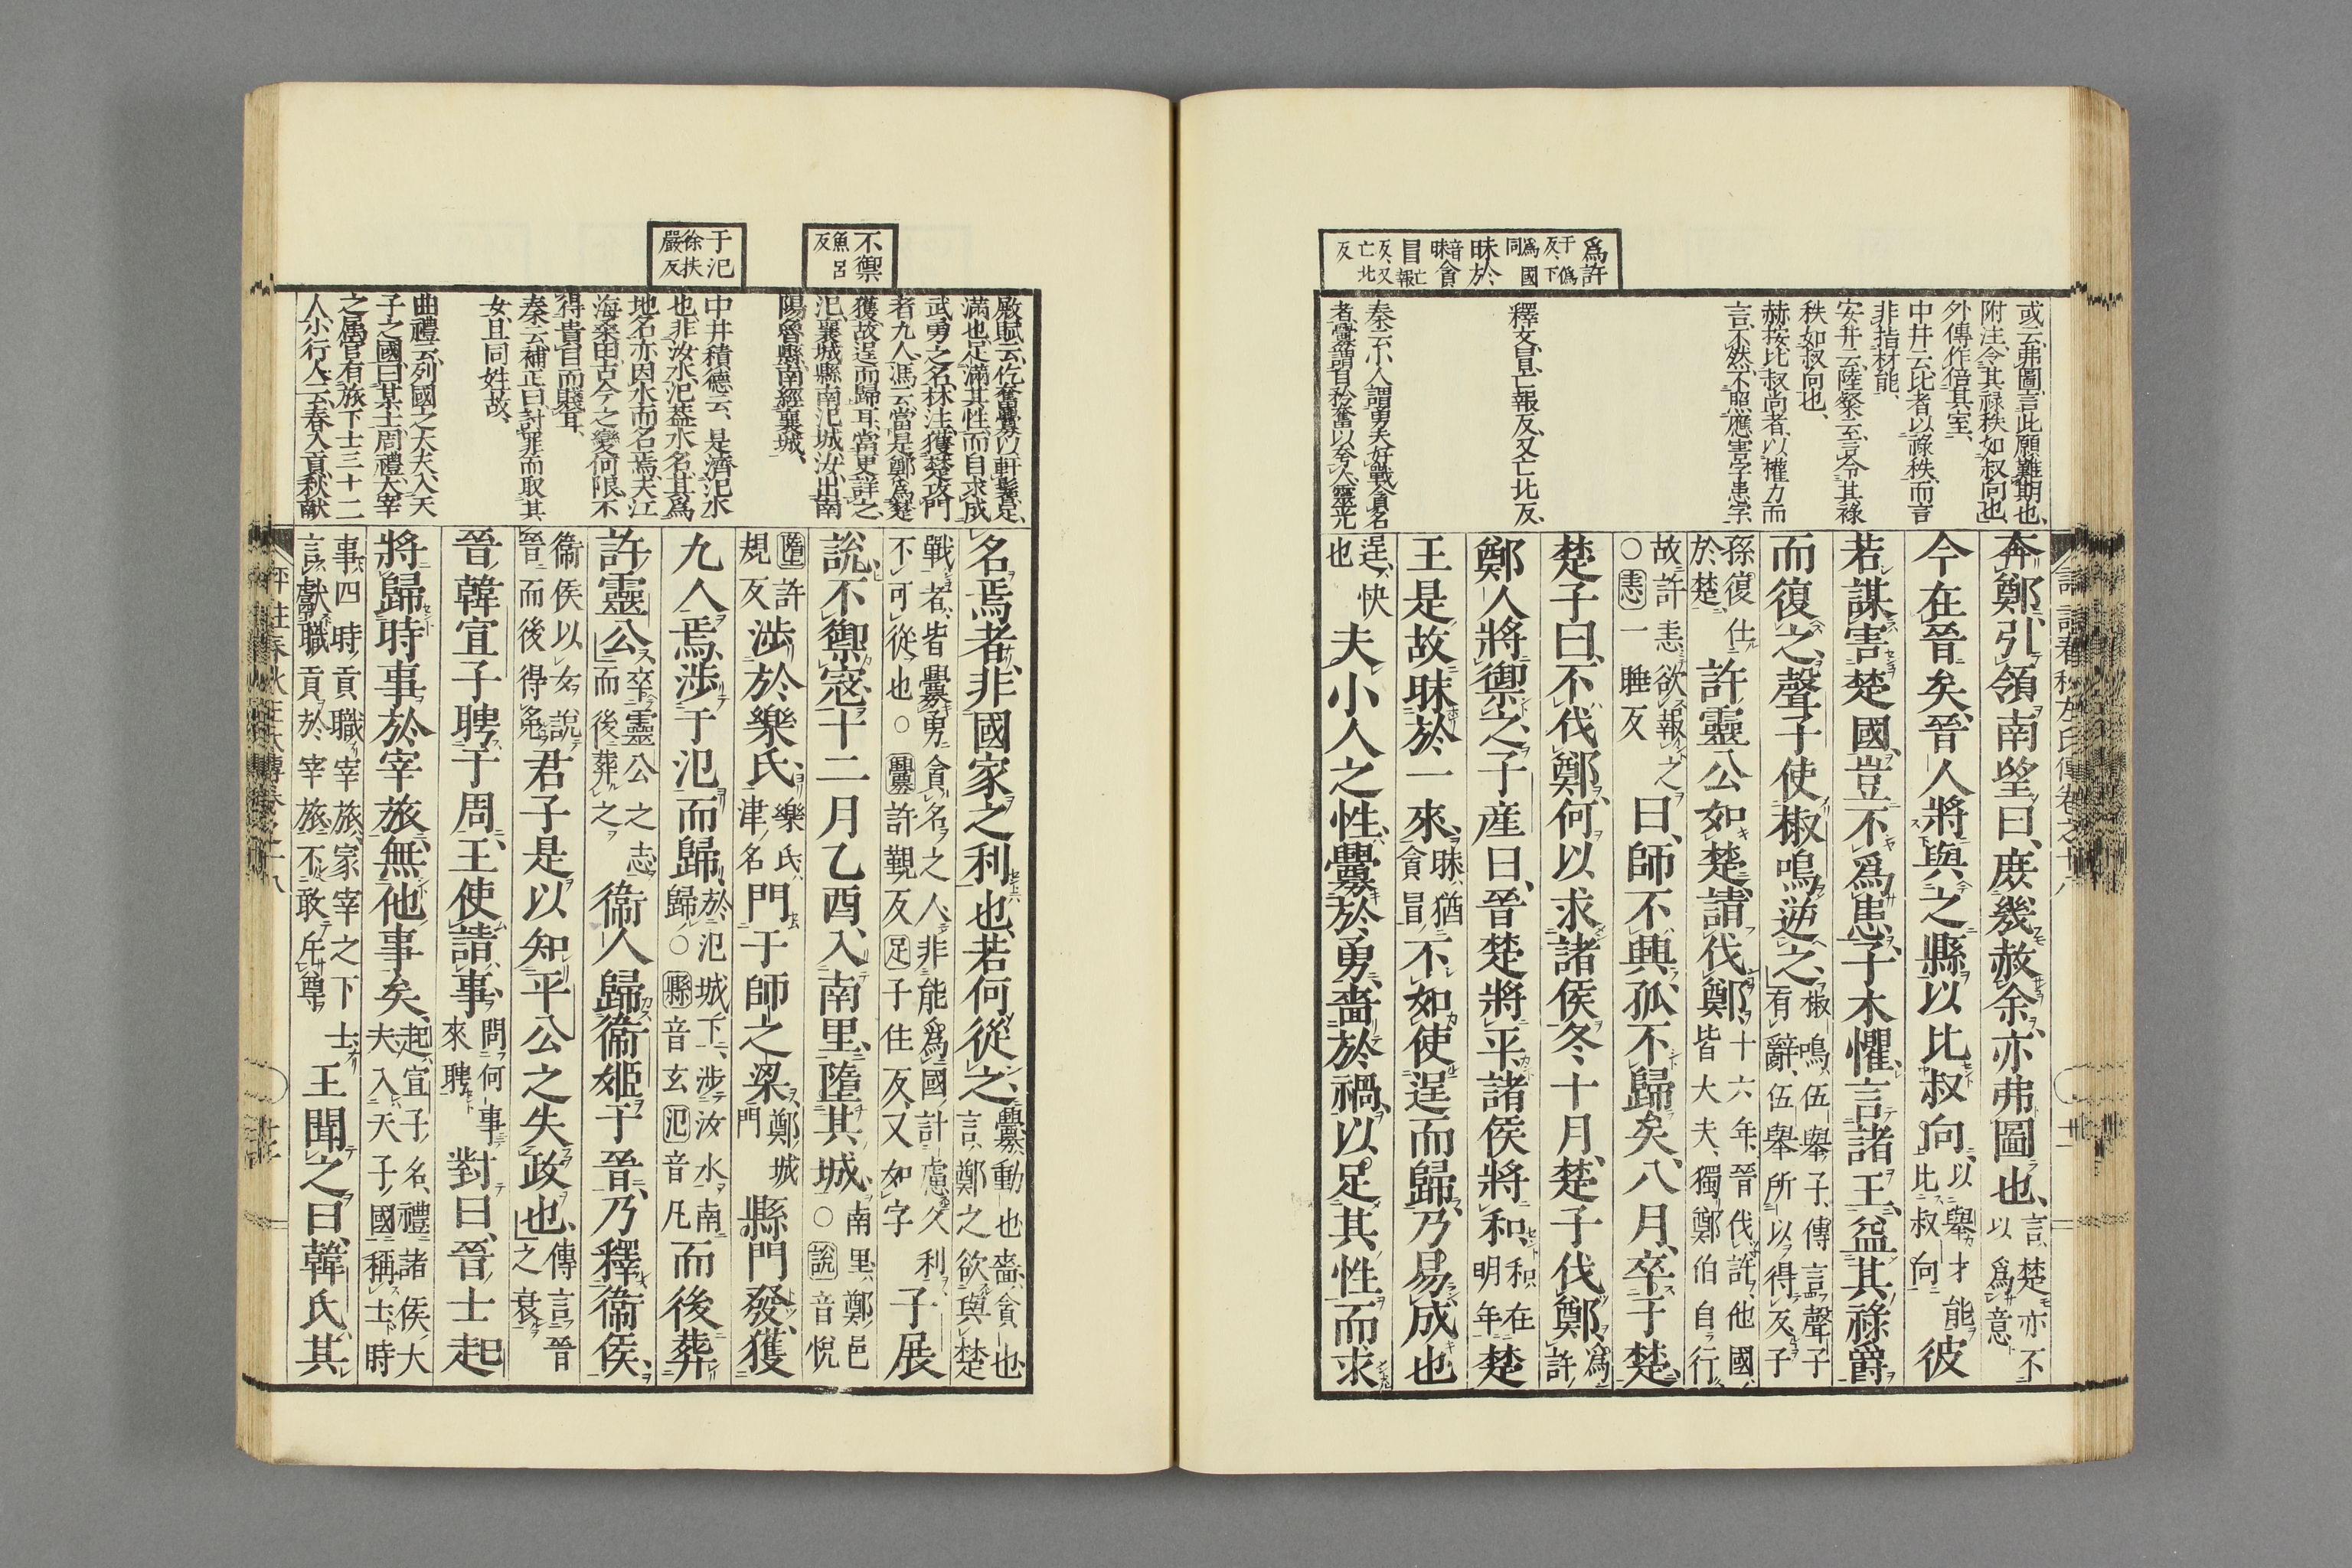 爲許
于僞
反下
爲國
同
昧於
音
昧
貪
冒
亡報
反又
亡北
反
或云弗圖言此願難期也、
附注、令其祿秩如叔向也、
外傳作倍其室、
中井云比者以祿秩而言
非指材能、
安井云、陸粲云言令其祿
秩如叔向也、
赫按比叔向者、以權力而
言、不然、不照應害字患字、
釋文、冒、亡報反、又亡北反、
秦云小人謂勇夫好戰貪名
者、釁謂自矜奮以夸人、靈光
奔鄭、引領南望曰、庶幾赦余、亦弗圖也、言楚亦不以爲意
今在晉矣、晉人將與之縣、以比叔向、以舉才能比叔向彼
若謀害楚國、豈不爲患、子木懼、言諸王、益其祿爵
而復之、聲子使椒鳴逆之、椒鳴伍舉子、傳言聲子有辭、伍舉所以得反、子
孫復仕於楚許靈公如楚、請伐鄭、十六年、晉伐許、他國皆大夫、獨鄭伯自行
故許恚欲報之○恚一睡反曰、師不興、孤不歸矣、八月、卒于楚、
楚子曰、不伐鄭、何以求諸侯、冬、十月、楚子伐鄭、爲許
鄭人將禦之、子産曰、晉楚將平、諸侯將和、和在明年楚
王是故昧於一來、昧猶貪冒不如使逞而歸、乃易成也
逞、快也夫小人之性、釁於勇、嗇於禍、以足其性、而求
不禦
魚呂
反
于氾
徐扶
嚴反
殿賦云、仡奮釁以軒鬐、是、
滿也足滿其性、而自求成
武勇之名、林注、獲楚攻門
者九人、馮云當是鄭爲楚
獲故逞而歸耳、當更詳之、
氾襄城縣南氾城、汝出南
陽魯縣、南經襄城、
中井積德云、是濟氾水
也、非汝水、氾蓋水名、其爲
地名、亦因水而名焉、夫江
海桑田、古今之變何限、不
得貴目而賤耳、
秦云、補正曰討罪而取其
女、且同姓故、
曲禮云、列國之大夫、入天
子之國、曰某士、周禮大宰
之屬官、有旅下士三十二
人、小行人云、春入貢、秋獻
名焉者、非國家之利也、若何從之、釁動也嗇、貪也言、鄭之欲與楚
戰者、皆釁勇貪名之人、非能爲國計慮久利不可從也○釁許覲反足子住反又如字子展
說、不禦寇、十二月乙酉、入南里、墮其城、南里、鄭邑○說音悅
墮許規反渉於樂氏、樂氏、津名門于師之梁、鄭城門縣門發、獲
九人焉、渉于氾而歸、於氾城下、渉汝水南歸○縣音玄氾音凡而後葬
許靈公、卒靈公之志而後葬之衞人歸衞姬于晉、乃釋衞侯、
衞侯以女說晉而後得免君子是以知平公之失政也、傳言晉之衰
晉韓宣子聘于周、王使請事、問何事來聘對曰、晉士起
將歸時事於宰旅、無他事矣、起宣子名、禮諸侯大夫入天子國、稱士、時
事四時貢職、宰旅、冢宰之下士、言獻職貢於宰旅、不敢斥尊王聞之曰、韓氏其